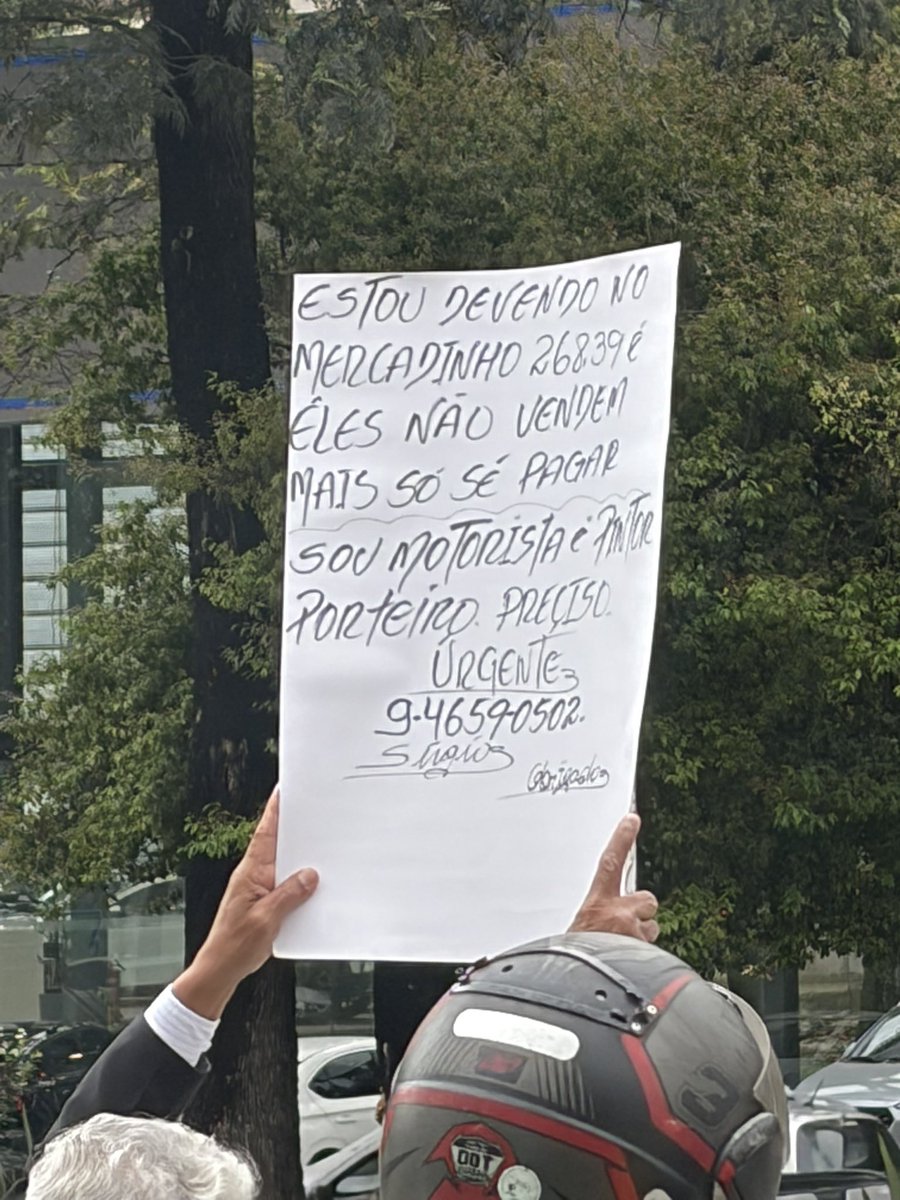 ESTOU DEVENDO NO
MERCADINHO 268,39 é
ÊLES NÃO VENDEM
MAIS SÓ SÉ PAGAR
SOU MOTORISTA é PINTOR
PORTEIRO. PRECISO.
URGENTE
9-4659-0502.
Sérgio
Obrigado
DOT